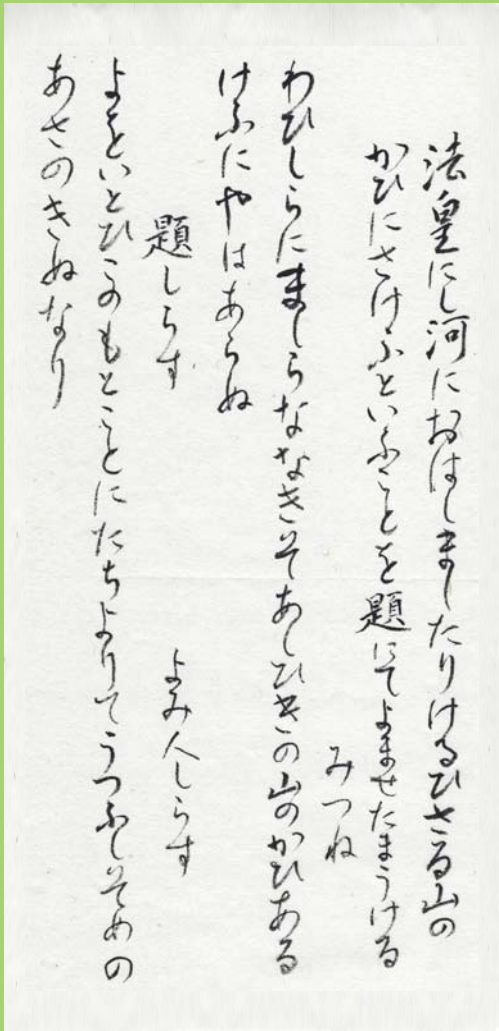 法皇にし河におはしましたりけるひさる山の
かひにさけふといふことを題にてよませたまうける
みつね
わひしらにましらななきそあしひきの山のかひある
けふにやはあらぬ
題しらす　よみ人しらす
よをいとひこのもとことにたちよりてうつふしそめの
あさのきぬなり